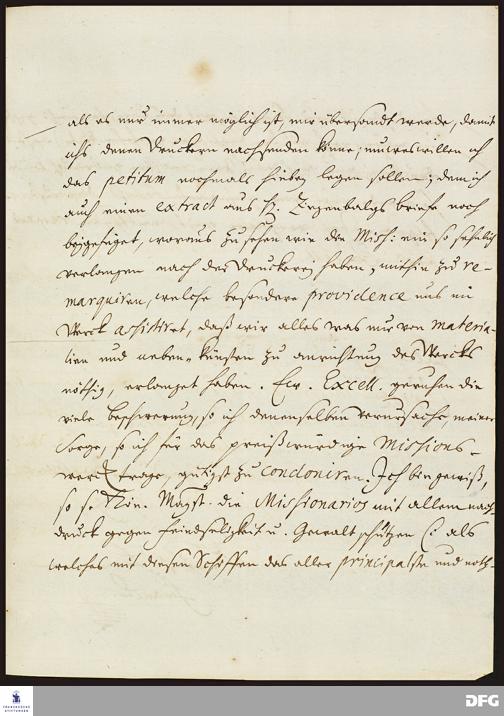 als es nur immer möglich ist, mir übersandt werde, damit
ichs denen Druckern nachsenden könne; umweswillen ich
das petitum nochmals hiebey legen sollen; dem ich
auch einen extract aus H. Ziegenbalgs briefe noch
beygefüget, woraus zu sehen wie die Miss: ein so sehnlich
verlangen nach der Druckerey haben, mithin zu re-
marquiren, welche besondere providence uns im
Werck assistiret, daß wir alles was nur von materia-
lien und neben-künsten zu anrichtung des Wercks
nöthig, erlanget haben. Ew. Excell. geruhen die
viele beschwerung, so ich denenselben verursache, meiner
Sorge, so ich für das preißwürdige Missions-
werck trage, gütigst zu condoniren. Ich bin gewiß,
so s. Kön. Mayst. die Missionarios mit allem nach-
druck gegen feindseligkeit u. Gewalt schützen (: als
welches mit diesen Schiffen das aller principalste und noth-
FRANCKESCHE
STIFTUNGEN
DFG